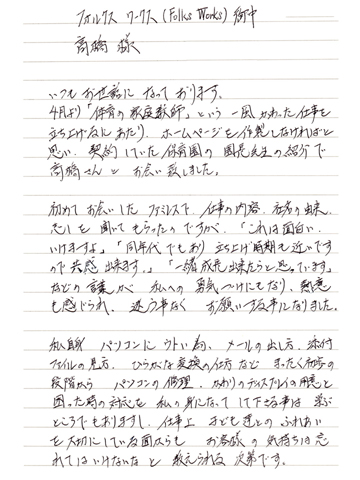 フォルクス ワークス (Folks Works) 御中
高橋 様
いつも お世話に なって おります。
4月より「保育の家庭教師」という 一風 かわった 仕事を
立ち上げるに あたり、ホームページを 作製しなければと
思い、契約していた 保育園の 園長先生の 紹介で
高橋さん と お会い 致しました。
初めて お会いした ファミレスで、仕事の内容、社名の由来、
志しを 聞いて もらったのですが、「これは面白い、
いけますよ」「同年代 でもあり 立上げ時期も 近いです
ので 共感 出来ます。」「一緒に成長出来たらと思っています」
などの 言葉が 私への 勇気づけにもなり、熱意
も感じられ、迷う事なく お願いする事になりました。
私自身 パソコンに ウトい為、メールの出し方、添付
ファイルの見方、ひらがな変換の仕方など まったく初歩の
段階から パソコンの修理、かわりのディスプレイの用意と
困った時の対応を 私の身になって して下さる事は 学ぶ
ところでもありますし、仕事上 子ども達との ふれあい
を大切にしている面からも お客様の 気持ちは忘
れてはいけないな と 教えられる 次第です。